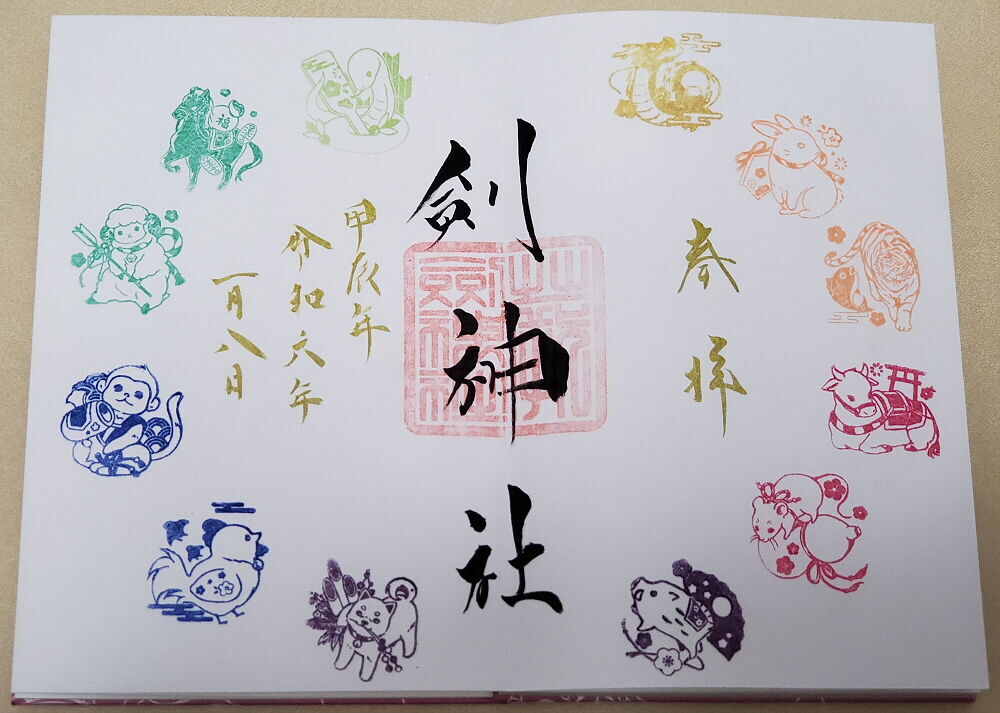 奉拝
剣神社
甲辰年
令和六年
一月八日
福